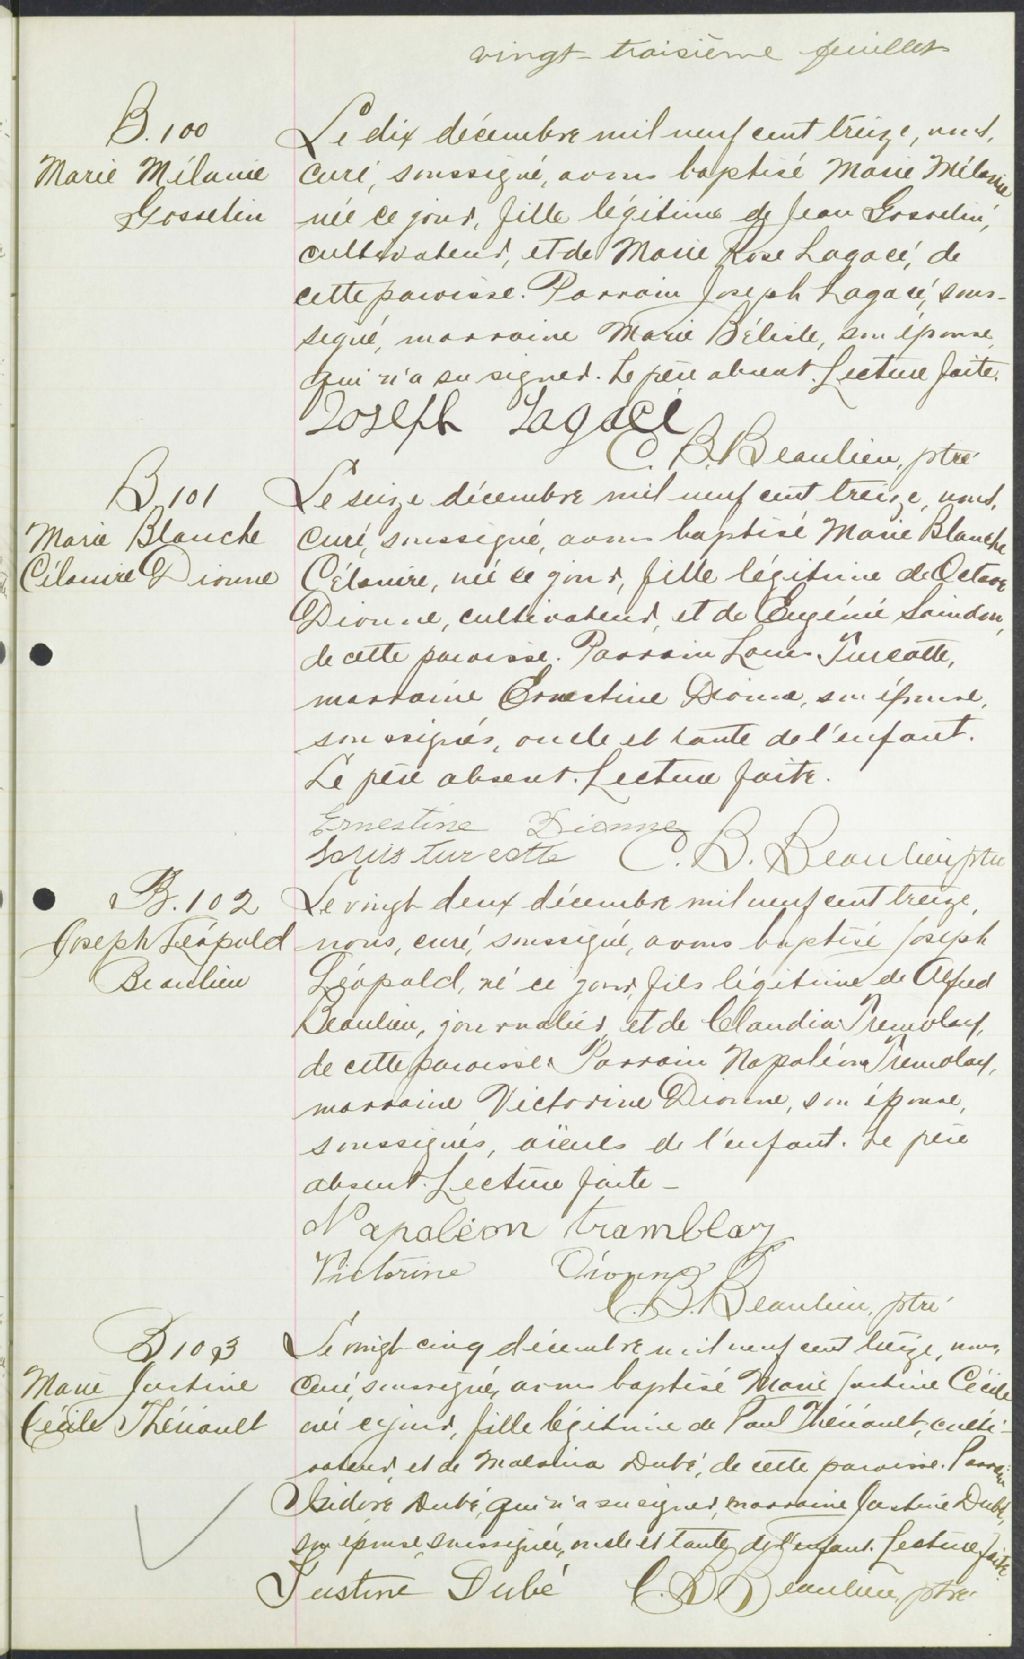 vingt-troisième feuillet
B. 100
Marie Mélanie
Gosselin
Le dix décembre mil neuf cent treize, nous,
curé, soussigné, avons baptisé Marie Mélanie
née ce jour, fille légitime de Jean Gosselin,
cultivateur, et de Marie Rose Lagacé, de
cette paroisse. Parrain Joseph Lagacé, sous-
signé, marraine Marie Bélisle, son épouse,
qui n'a su signer. Le père absent. Lecture faite.
Joseph Lagacé
C. B. Beaulieu, ptre
B. 101
Marie Blanche
Célanire Dionne
Le seize décembre mil neuf cent treize, nous,
curé, soussigné, avons baptisé Marie Blanche
Célanire, née ce jour, fille légitime de Octave
Dionne, cultivateur, et de Eugénie Saindon,
de cette paroisse. Parrain Louis Turcotte,
marraine Ernestine Dionne, son épouse,
soussignés, oncle et tante de l'enfant.
Le père absent. Lecture faite.
Ernestine Dionne
Louis turcotte C. B. Beaulieu ptre
B. 102
Joseph Léopold
Beaulieu
Le vingt deux décembre mil neuf cent treize,
nous, curé, soussigné, avons baptisé Joseph
Léopold, né ce jour, fils légitime de Alfred
Beaulieu, journalier, et de Claudia Tremblay,
de cette paroisse. Parrain Napoléon Tremblay,
marraine Victorine Dionne, son épouse,
soussignés, aïeuls de l'enfant. Le père
absent. Lecture faite -
Napoléon tramblay
Victorine Dionne
C. B. Beaulieu, ptre
B. 103
Marie Justine
Cécile Thériault
Le vingt-cinq décembre mil neuf cent treize, nous,
curé, soussigné, avons baptisé Marie Justine Cécile
née ce jour, fille légitime de Paul Thériault, culti-
vateur, et de Malvina Dubé, de cette paroisse. Parrain
Isidore Dubé, qui n'a su signer, marraine Justine Dubé,
son épouse soussignée, oncle et tante de l'enfant. Lecture faite.
Justine Dubé C. B. Beaulieu, ptre